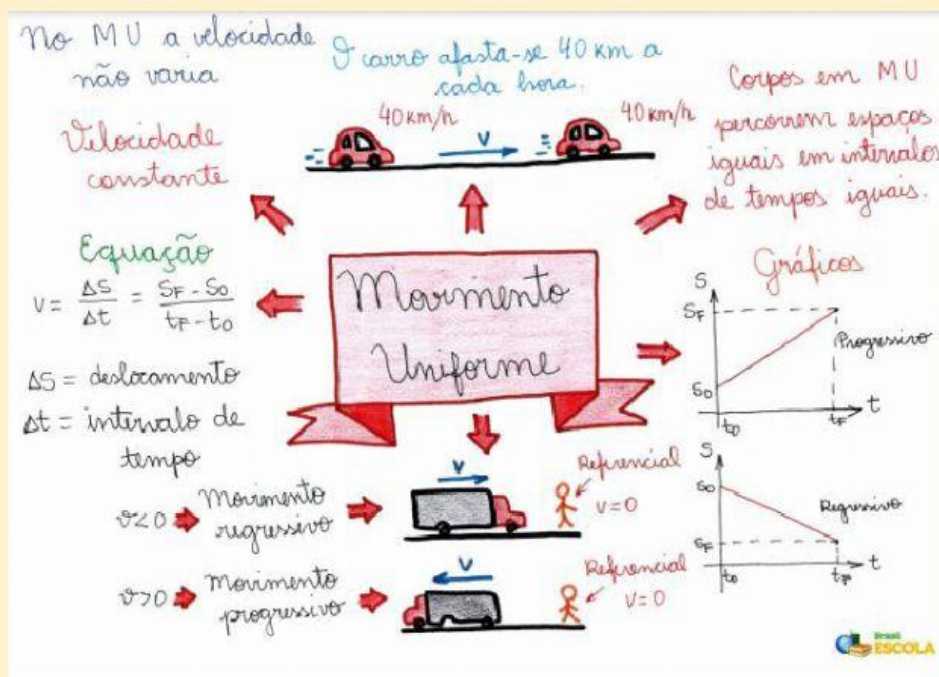 No MU a velocidade
não varia
O carro afasta-se 40 km a
cada hora.
Corpos em MU
percorrem espaços
iguais em intervalos
de tempos iguais.
Velocidade
constante
40 km/h
V
40 km/h
Equação
V = ΔS/Δt = SF - S0/tF - t0
ΔS = deslocamento
Δt = intervalo de
tempo
Movimento
Uniforme
Gráficos
S
SF
S0
t0
tF
t
Progressivo
S
S0
SF
t0
tF
t
Regressivo
v<0
Movimento
regressivo
V
Referencial
V=0
v>0
Movimento
progressivo
V
Referencial
V=0
Brasil
ESCOLA